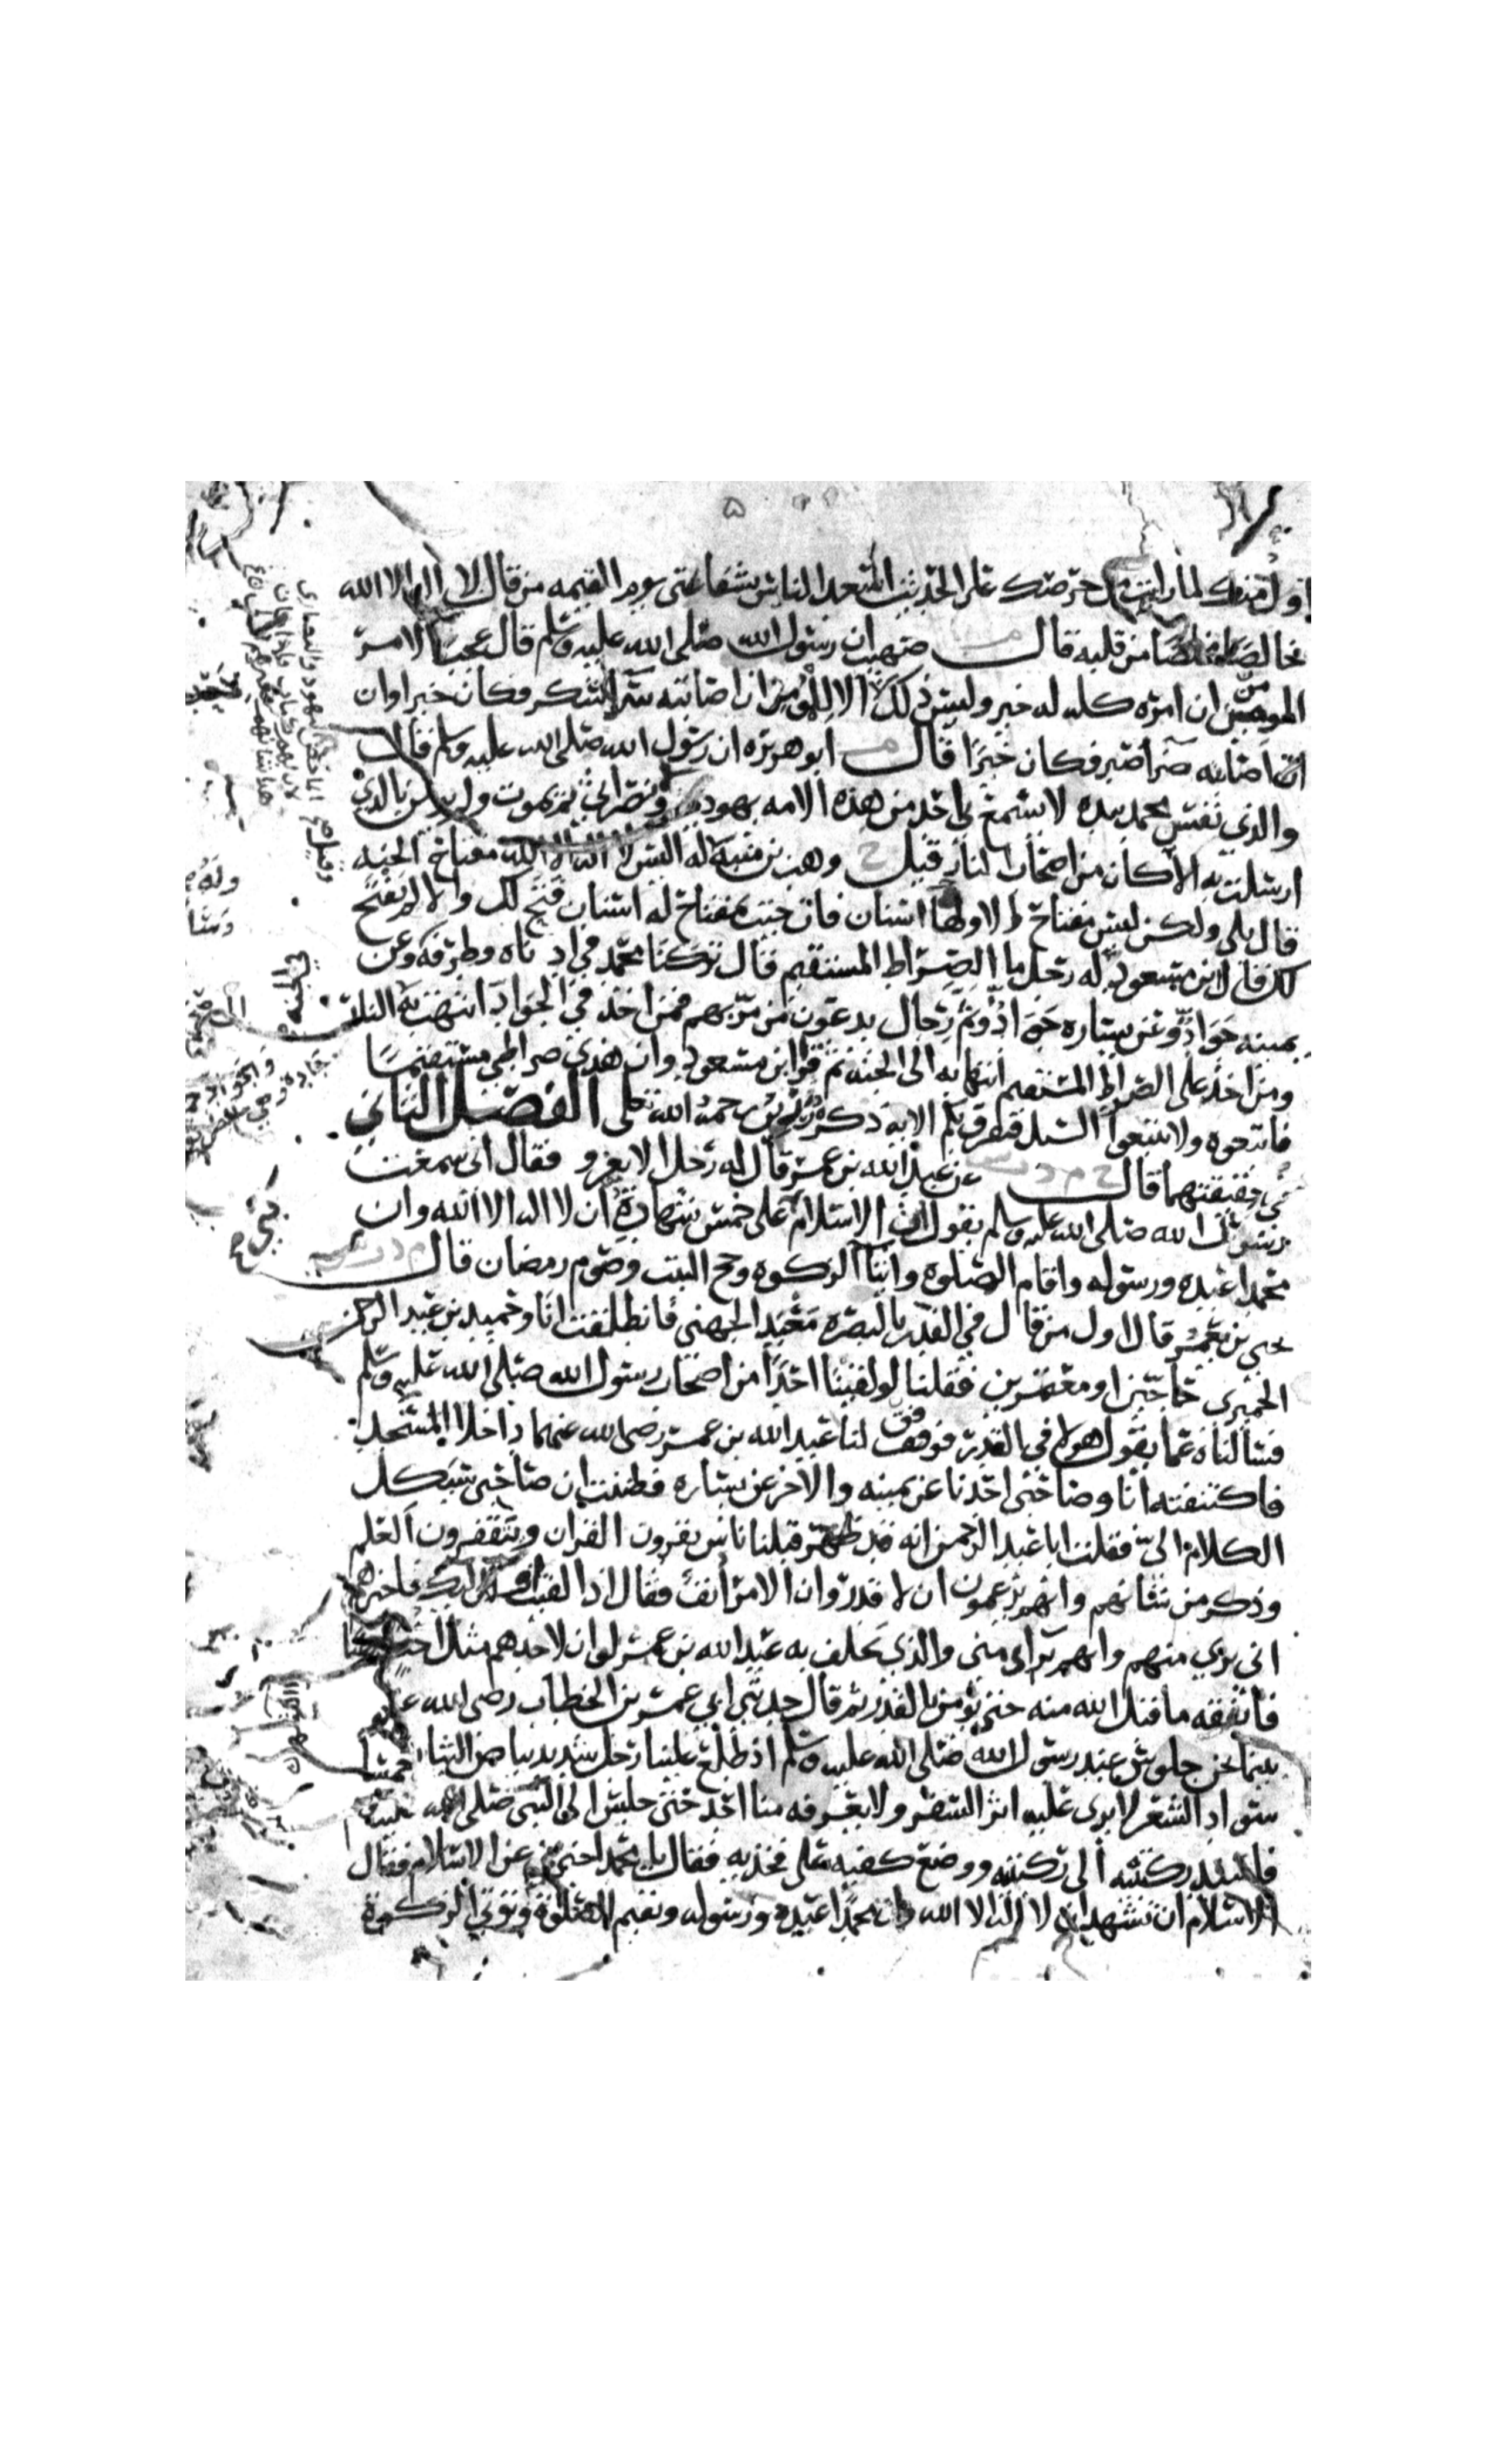 اول منك لما رايت من حرصك على الحديث اسعد الناس بشفاعتي يوم القيمه من قال لا اله الا الله
خالصا مخلصا من قلبه قال صهيب ان رسول الله صلى الله عليه وسلم قال عجبا لامر
المومن ان امره كله له خير وليس ذلك الا للمومن ان اصابته سرا شكر فكان خيرا وان
اصابته ضرا صبر فكان خيرا قال ابو هريره ان رسول الله صلى الله عليه وسلم قال
والذي نفس محمد بيده لا يسمع بي احد من هذه الامه يهودي ونصراني ثم يموت ولم يومن بالذي
ارسلت به الا كان من اصحاب النار قيل وهب بن منبه له اليس لا اله الا الله مفتاح الجنه
قال بلى ولكن ليس مفتاح الا وله اسنان فان جيت بمفتاح له اسنان فتح لك والا لم يفتح
لك قال ابن مسعود له رجل ما الصراط المستقيم قال تركنا محمد في ادناه وطرفه وعن
يمينه جواد وعن يساره جواد وثم رجال يدعون من مر بهم فمن اخذ في الجواد انتهت به الى النار
ومن اخذ على الصراط المستقيم انتها به الى الجنه ثم قرا ابن مسعود وان هذي صراطي مستقيما
فاتبعوه ولا تتبعوا السبل فتفرق بكم الايه ذكره رزين رحمه الله تعالى الفصل الثاني
في حقيقتهما قال عن عبد الله بن عمر قال له رجل الا يغزو فقال اني سمعت
رسول الله صلى الله عليه وسلم يقول ان الاسلام على خمس شهادة ان لا اله الا الله وان
محمدا عبده ورسوله واقام الصلوة وايتا الزكوه وحج البيت وصوم رمضان قال
يحيى بن يعمر قال اول من قال في القدر بالبصره معبد الجهني فانطلقت انا وحميد بن عبد الرحمن
الحميري حاجين او معتمرين فقلنا لو لقينا احدا من اصحاب رسول الله صلى الله عليه وسلم
فسالناه عما يقول هولا في القدر فوفق لنا عبد الله بن عمر رضي الله عنهما داخلا المسجد
فاكتنفته انا وصاحبي احدنا عن يمينه والاخر عن يساره فظننت ان صاحبي سيكل
الكلام الي فقلت ابا عبد الرحمن انه قد ظهر قبلنا ناس يقرون القران ويتقفرون العلم
وذكر من شانهم وانهم يزعمون ان لا قدر وان الامر انف فقال اذا لقيت اوليك فاخبرهم
اني بري منهم وانهم براي مني والذي يحلف به عبد الله بن عمر لو ان لاحدهم مثل احد ذهبا
فانفقه ما قبل الله منه حتى يومن بالقدر ثم قال حدثني ابي عمر بن الخطاب رضي الله عنه
بينما نحن جلوس عند رسول الله صلى الله عليه وسلم اذ طلع علينا رجل شديد بياض الثياب شديد
سواد الشعر لا يرى عليه اثر السفر ولا يعرفه منا احد حتى جلس الى النبي صلى الله عليه
فاسند ركبتيه الى ركبتيه ووضع كفيه على فخذيه فقال يا محمد اخبرني عن الاسلام فقال
الاسلام ان تشهد ان لا اله الا الله وان محمدا عبده ورسوله وتقيم الصلوة وتوتي الزكوة